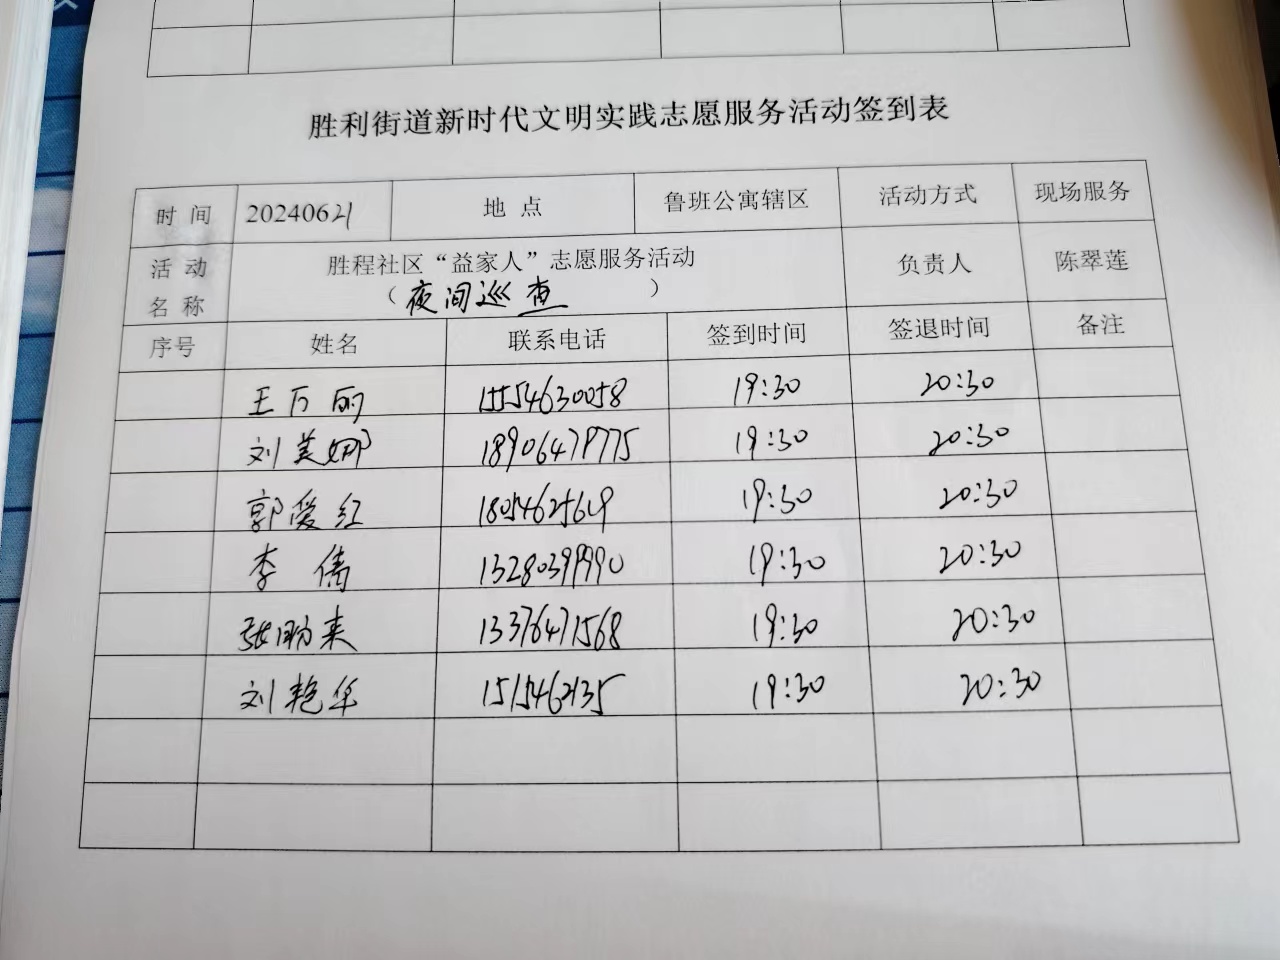 胜利街道新时代文明实践志愿服务活动签到表
时间 20240621 地点 鲁班公寓辖区 活动方式 现场服务
活动名称 胜程社区“益家人”志愿服务活动 负责人 陈翠莲
（夜间巡查）
序号 姓名 联系电话 签到时间 签退时间 备注
王万丽 15554630058 19:30 20:30
刘美娜 18906479775 19:30 20:30
郭爱红 19:30 20:30
李倩 13280399990 19:30 20:30
张鹏来 13376471568 19:30 20:30
刘艳华 19:30 20:30